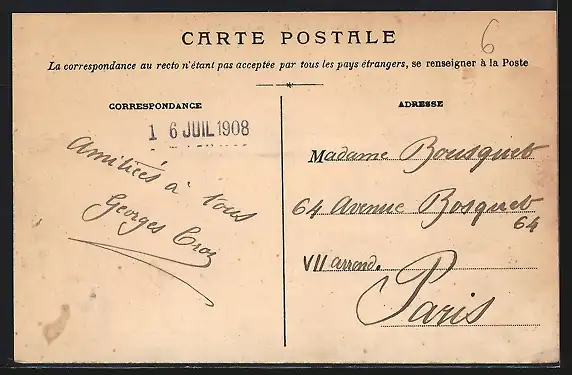 6
CARTE POSTALE
La correspondance au recto n'étant pas acceptée par tous les pays étrangers, se renseigner à la Poste
CORRESPONDANCE
1 6 JUIL 1908
Amitiées à tous
Georges
ADRESSE
Madame Bousquet
64 Avenue Bosquet
64
VII arrond.
Paris